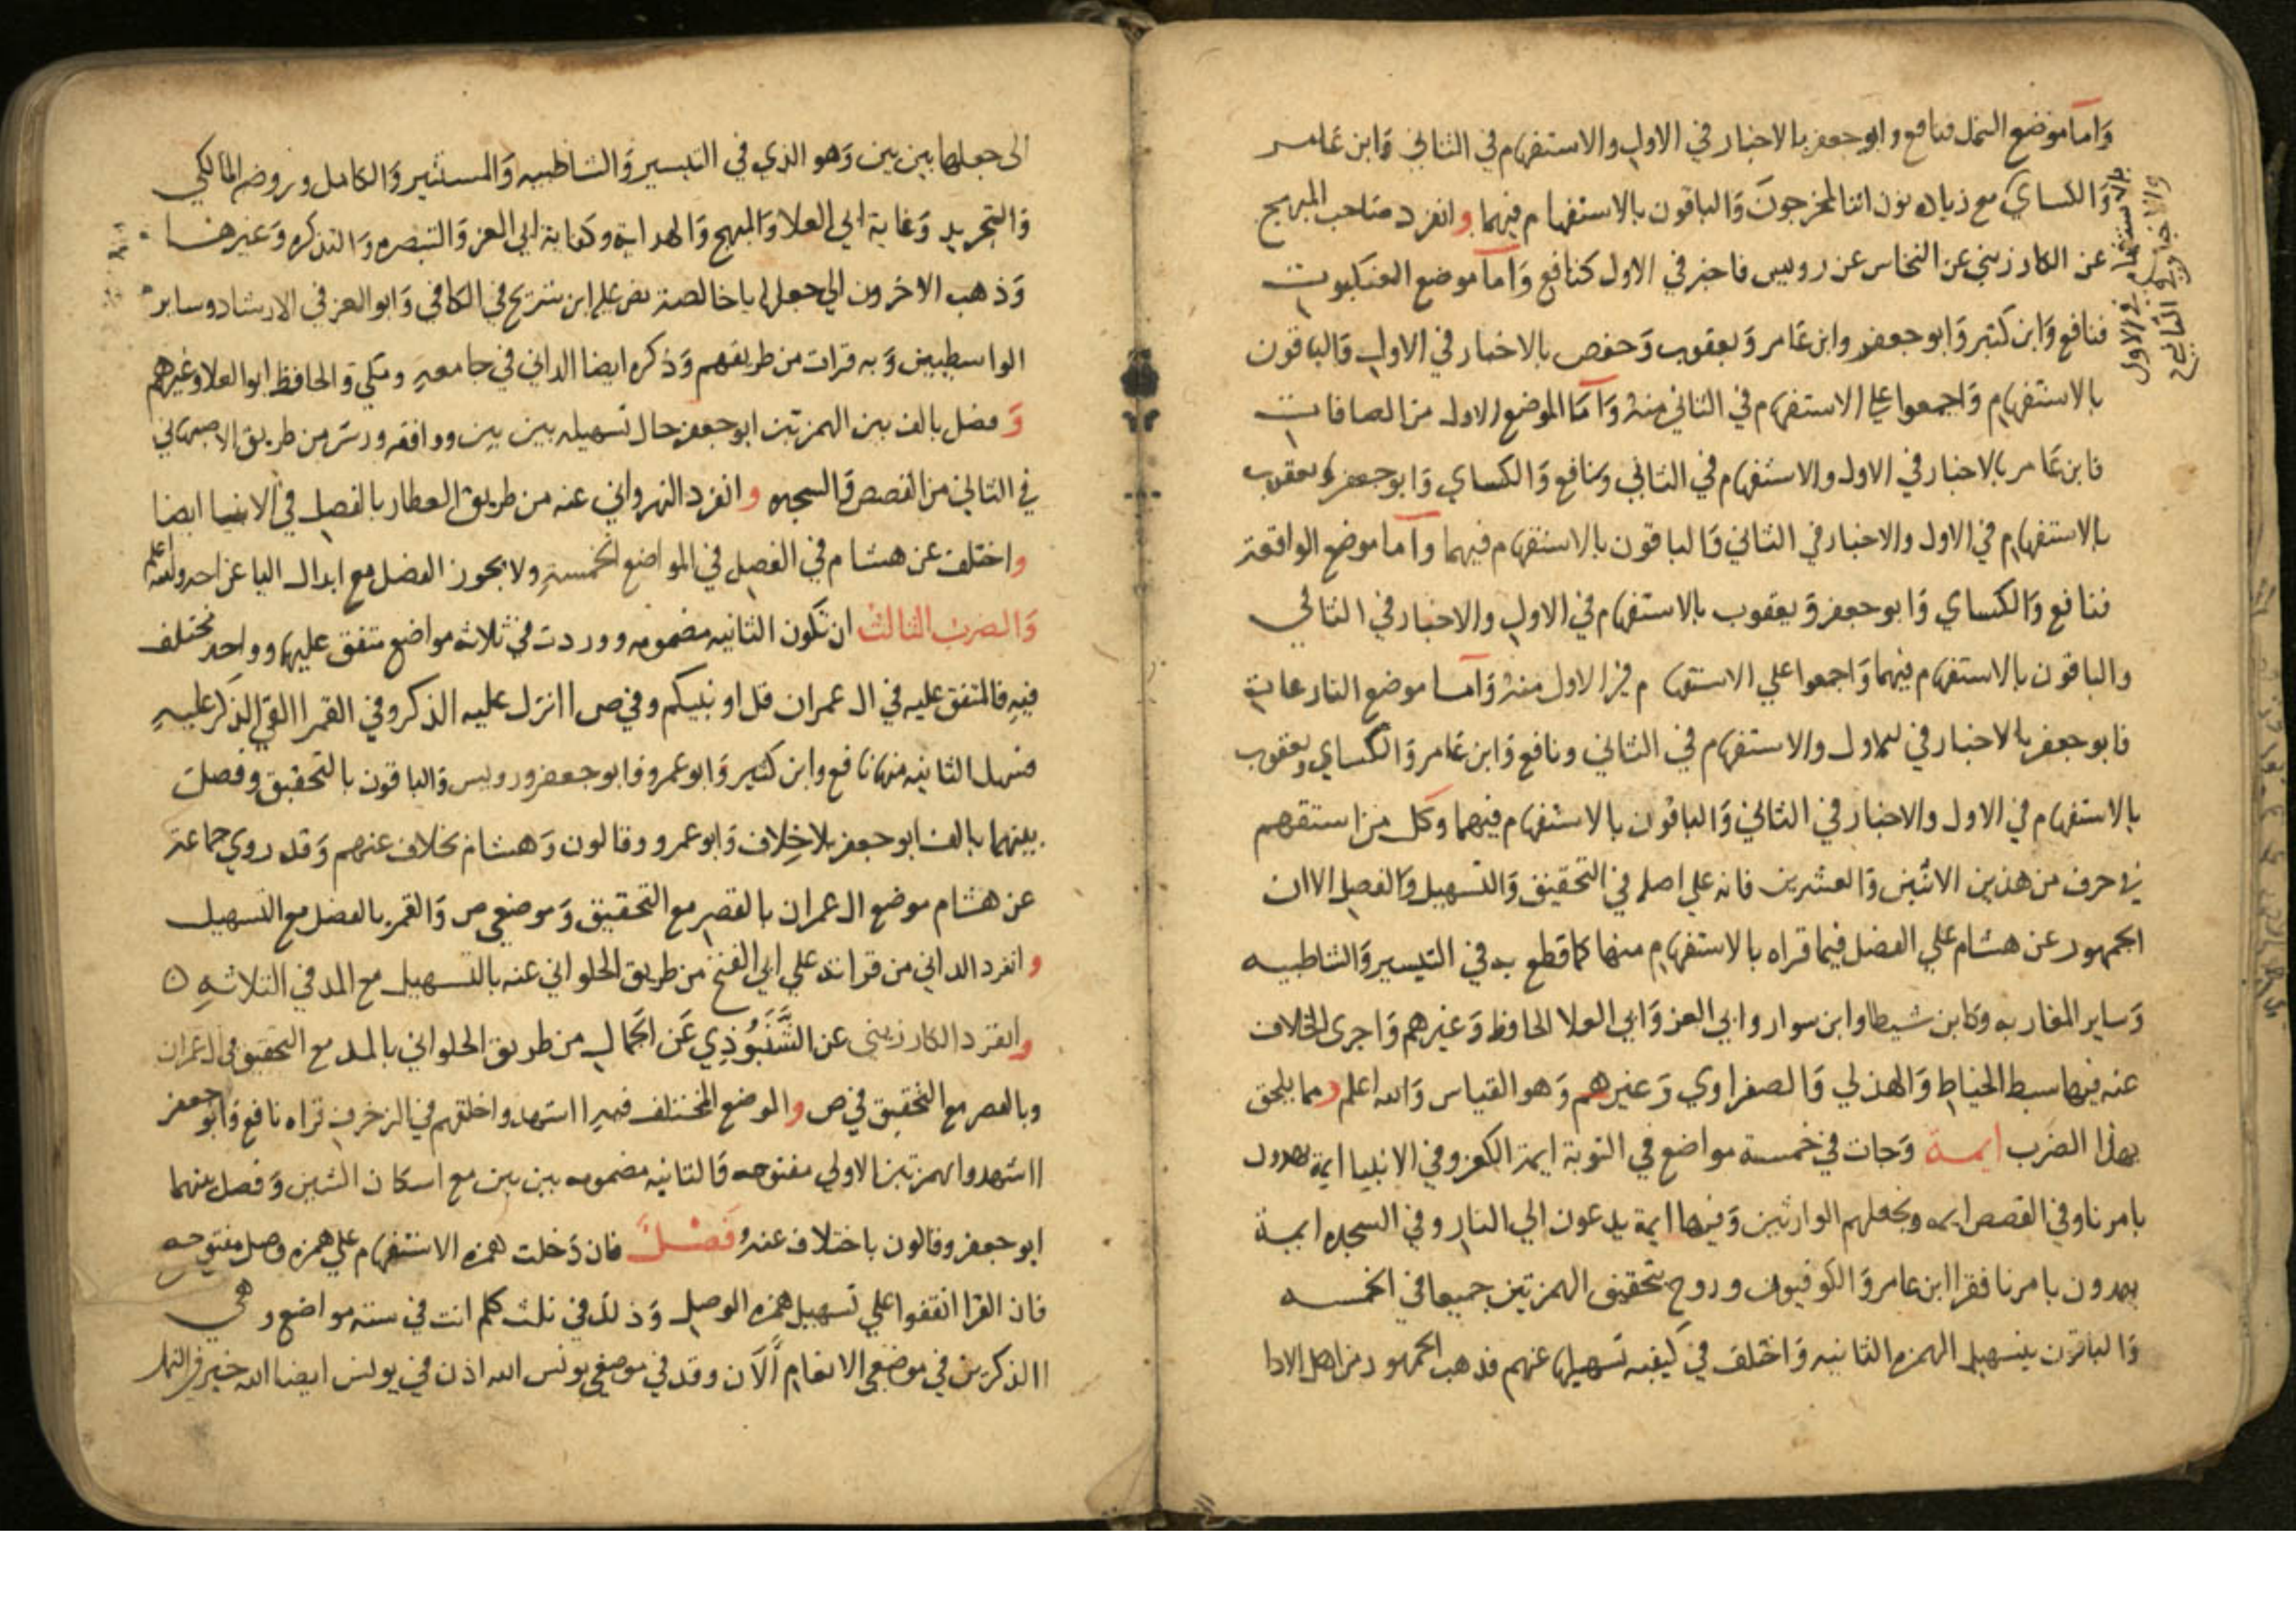 وأما موضع النمل فنافع وابو جعفر بالاخبار في الاول والاستفهام في الثاني وابن عامر
والكساي مع زيادة نون اننا لمخرجون والباقون بالاستفهام فيهما وانفرد صاحب المبهج
بالاستفهام في الاول
والاخبار في الثاني
عن الكارزيني عن النخاس عن رويس فاخبر في الاول كنافع وأما موضع العنكبوت
فنافع وابن كثير وابو جعفر وابن عامر ويعقوب وحفص بالاخبار في الاول والباقون
بالاستفهام واجمعوا على الاستفهام في الثاني منه وأما الموضع الاول من الصافات
فابن عامر بالاخبار في الاول والاستفهام في الثاني ونافع والكساي وابو جعفر ويعقوب
بالاستفهام في الاول والاخبار في الثاني والباقون بالاستفهام فيهما وأما موضع الواقعة
فنافع والكساي وابو جعفر ويعقوب بالاستفهام في الاول والاخبار في الثاني
والباقون بالاستفهام فيهما واجمعوا علي الاستفهام في الاول منه وأما موضع النازعات
فابو جعفر بالاخبار في الاول والاستفهام في الثاني ونافع وابن عامر والكساي ويعقوب
بالاستفهام في الاول والاخبار في الثاني والباقون بالاستفهام فيهما وكل من استفهم
في حرف من هذين الاثنين والعشرين فانه علي اصله في التحقيق والتسهيل والفصل الا ان
الجمهور عن هشام علي الفصل فيما قراه بالاستفهام منها كما قطع به في التيسير والشاطبيه
وساير المغاربه وكابن شيطا وابن سوار وابي العز وابي العلا الحافظ وغيرهم واجرى الخلاف
عنه فيها سبط الخياط والهذلي والصفراوي وغيرهم وهو القياس والله اعلم ومما يلحق
بهذا الضرب ايمة وجات في خمسة مواضع في التوبة ايمة الكفر وفي الانبيا ايمة يهدون
بامرنا وفي القصص ايمه ونجعلهم الوارثين وفيها ايمة يدعون الي النار وفي السجده ايمة
يهدون بامرنا فقرا ابن عامر والكوفيون وروح بتحقيق الهمزتين جميعا في الخمسه
والباقون بتسهيل الهمزه الثانيه واختلف في كيفيه تسهيلها عنهم فذهب الجمهور من اهل الادا
الى جعلها بين بين وهو الذي في التيسير والشاطبيه والمستنير والكامل وروضه المالكي
والتجريد وغاية ابي العلا والمبهج والهداية وكفاية ابي العز والتبصره والتذكره وغيرها
وذهب الاخرون الي جعلها ياخالصة نص عليه ابن شريح في الكافي وابو العز في الارشاد وساير
الواسطيين وبه قرات من طريقهم وذكره ايضا الداني في جامعه ومكي والحافظ ابو العلا وغيرهم
وفصل بالف بين الهمزتين ابو جعفر حال تسهيله بين بين ووافقه ورش من طريق الاصبهاني
في الثاني من القصص والسجده وانفرد النهرواني عنه من طريق العطار بالفصل في الانبيا ايضا
واختلف عن هشام في الفصل في المواضع الخمسة ولا يجوز الفصل مع ابدال اليا عن احد والله اعلم
والضرب الثالث ان تكون الثانيه مضمومه ووردت في ثلاثه مواضع متفق عليها وواحد مختلف
فيه فالمتفق عليه في ال عمران قل اونبيكم وفي ص اانزل عليه الذكر وفي القمر االقي الذكر عليه
فسهل الثانيه منها نافع وابن كثير وابو عمرو وابو جعفر ورويس والباقون بالتحقيق وفصل
بينهما بالف ابو جعفر بلا خلاف وابو عمرو وقالون وهشام بخلاف عنهم وقد روي جماعة
عن هشام موضع ال عمران بالقصر مع التحقيق وموضعي ص والقمر بالفصل مع التسهيل
وانفرد الداني من قراته علي ابي الفتح من طريق الحلواني عنه بالتسهيل مع المد في الثلاثه ه
وانفرد الكارزيني عن الشنبوذي عن الجمال من طريق الحلواني بالمد مع التحقيق في ال عمران
وبالقصر مع التحقيق في ص والموضع المختلف فيه ااشهدوا خلقهم في الزخرف قراه نافع وابو جعفر
ااشهدوا بهمزتين الاولي مفتوحه والثانيه مضمومه بين بين مع اسكان الشين وفصل بينهما
ابو جعفر وقالون باختلاف عنه فصل فان دخلت همزه الاستفهام علي همزه وصل مفتوحه
فان القرا اتفقوا علي تسهيل همزه الوصل وذلك في ثلث كلم اتت في ستة مواضع وهي
االذكرين في موضعي الانعام آلآن وقد في موضعي يونس الله اذن في يونس ايضا الله خير في النمل